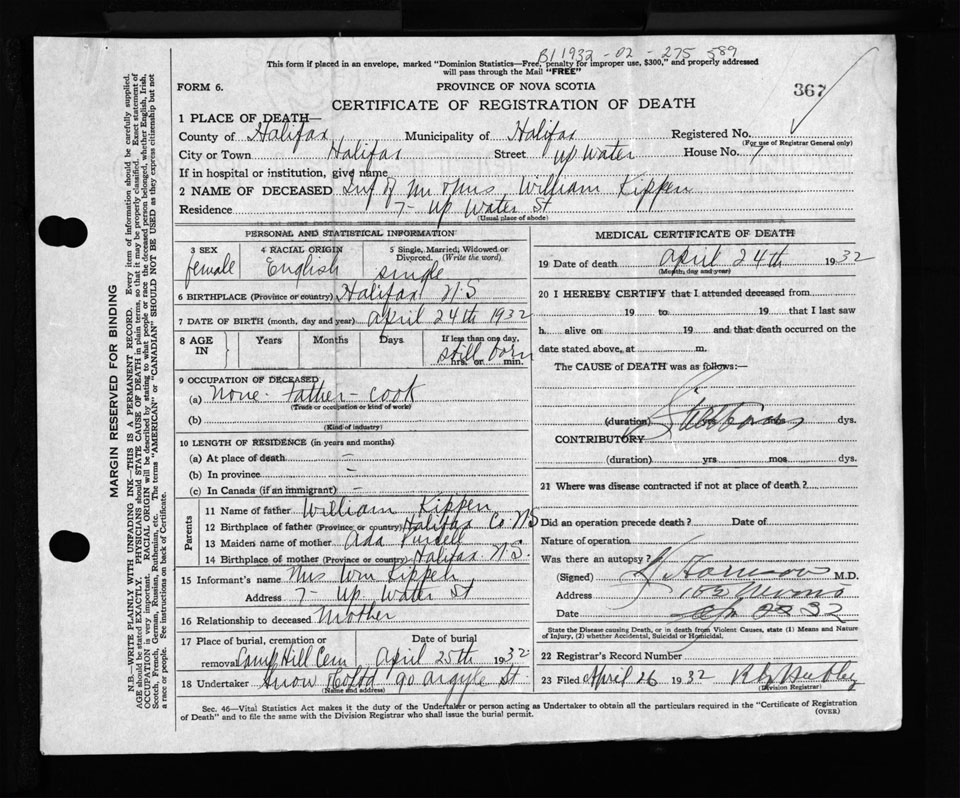 B1 1932 - 02 - 275 589
This form if placed in an envelope, marked "Dominion Statistics—Free, penalty for improper use, $300," and properly addressed
will pass through the Mail "FREE"
FORM 6.
PROVINCE OF NOVA SCOTIA
367
CERTIFICATE OF REGISTRATION OF DEATH
1 PLACE OF DEATH—
County of Halifax Municipality of Halifax Registered No.
(For use of Registrar General only)
City or Town Halifax Street Up Water House No. 7
If in hospital or institution, give name
2 NAME OF DECEASED Inf of Mr & Mrs William Kippen
Residence 7- Up Water St
(Usual place of abode)
PERSONAL AND STATISTICAL INFORMATION
3 SEX female
4 RACIAL ORIGIN English
5 Single, Married, Widowed or Divorced. (Write the word) single
6 BIRTHPLACE (Province or country) Halifax N.S
7 DATE OF BIRTH (month, day and year) April 24th 1932
8 AGE IN Years Months Days If less than one day, still born hrs. or min.
9 OCCUPATION OF DECEASED
(a) None. Father - cook
(Trade or occupation or kind of work)
(b)
(Kind of industry)
10 LENGTH OF RESIDENCE (in years and months)
(a) At place of death —
(b) In province —
(c) In Canada (if an immigrant) —
Parents
11 Name of father William Kippen
12 Birthplace of father (Province or country) Halifax Co NS
13 Maiden name of mother Ada
14 Birthplace of mother (Province or country) Halifax N.S.
15 Informant's name Mrs Wm Kippen
Address 7- Up Water St
16 Relationship to deceased Mother
17 Place of burial, cremation or removal Camp Hill Cem Date of burial April 25th 1932
18 Undertaker Snow & Co Ltd 90 Argyle St.
(Name and address)
MEDICAL CERTIFICATE OF DEATH
19 Date of death April 24th 1932
(Month, day and year)
20 I HEREBY CERTIFY that I attended deceased from
19 to 19 that I last saw
h alive on 19 and that death occurred on
date stated above, at m.
The CAUSE of DEATH was as follows:—
Stillborn
(duration) dys.
CONTRIBUTORY
(duration) yrs mos dys.
21 Where was disease contracted if not at place of death?
Did an operation precede death? Date of
Nature of operation
Was there an autopsy?
(Signed) M.D.
Address
Date
State the Disease causing Death, or in death from Violent Causes, state (1) Means and Nature
of Injury, (2) whether Accidental, Suicidal or Homicidal.
22 Registrar's Record Number
23 Filed April 26 1932
(Division Registrar)
Sec. 46—Vital Statistics Act makes it the duty of the Undertaker or person acting as Undertaker to obtain all the particulars required in the "Certificate of Registration
of Death" and to file the same with the Division Registrar who shall issue the burial permit.
(OVER)
MARGIN RESERVED FOR BINDING
N.B.—WRITE PLAINLY WITH UNFADING INK—THIS IS A PERMANENT RECORD. Every item of information should be carefully supplied.
AGE should be stated EXACTLY. PHYSICIANS should STATE CAUSE OF DEATH in plain terms, so that it may be properly classified. Exact statement of
OCCUPATION is very important. RACIAL ORIGIN will be described by stating to what people or race the deceased person belonged, whether English, Irish,
Scotch, French, German, Russian, Ruthenian, etc. The terms "AMERICAN" or "CANADIAN" SHOULD NOT BE USED as they express citizenship but not
a race or people. See instructions on back of Certificate.